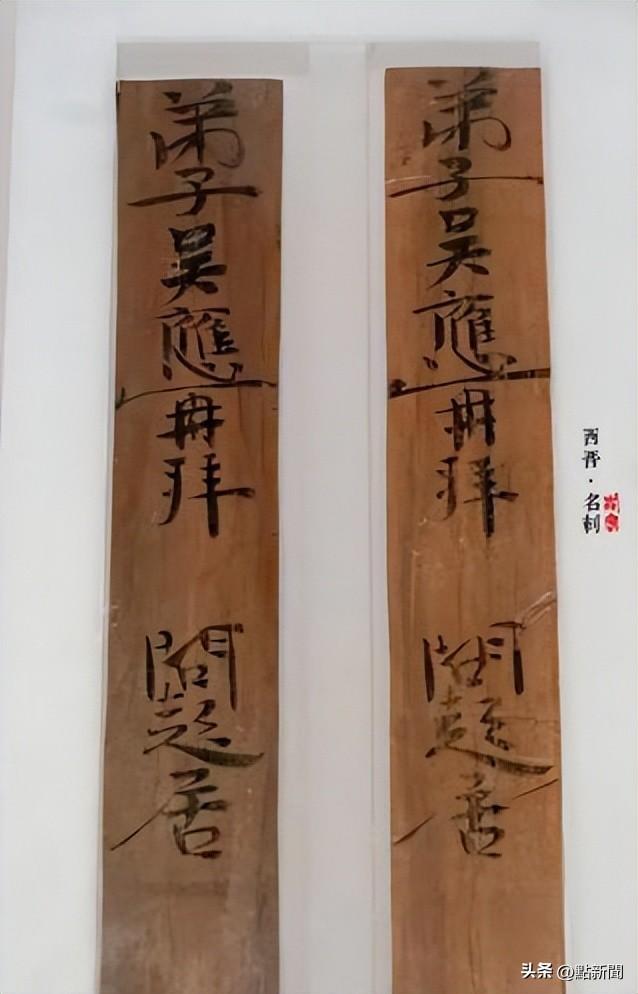 西晋·名刺
弟子吳應再拜 問起居
弟子吳應再拜 問起居
头条 @點新聞